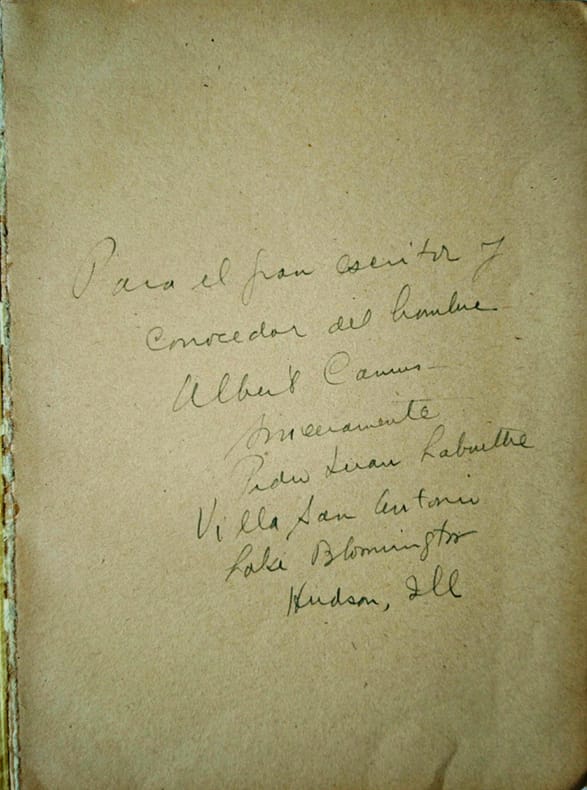 Para el gran escritor y
conocedor del hombre
Albert Camus
Sinceramente
Pedro Juan Labarthe
Villa San Antonio
Lake Blomington
Hudson, Ill